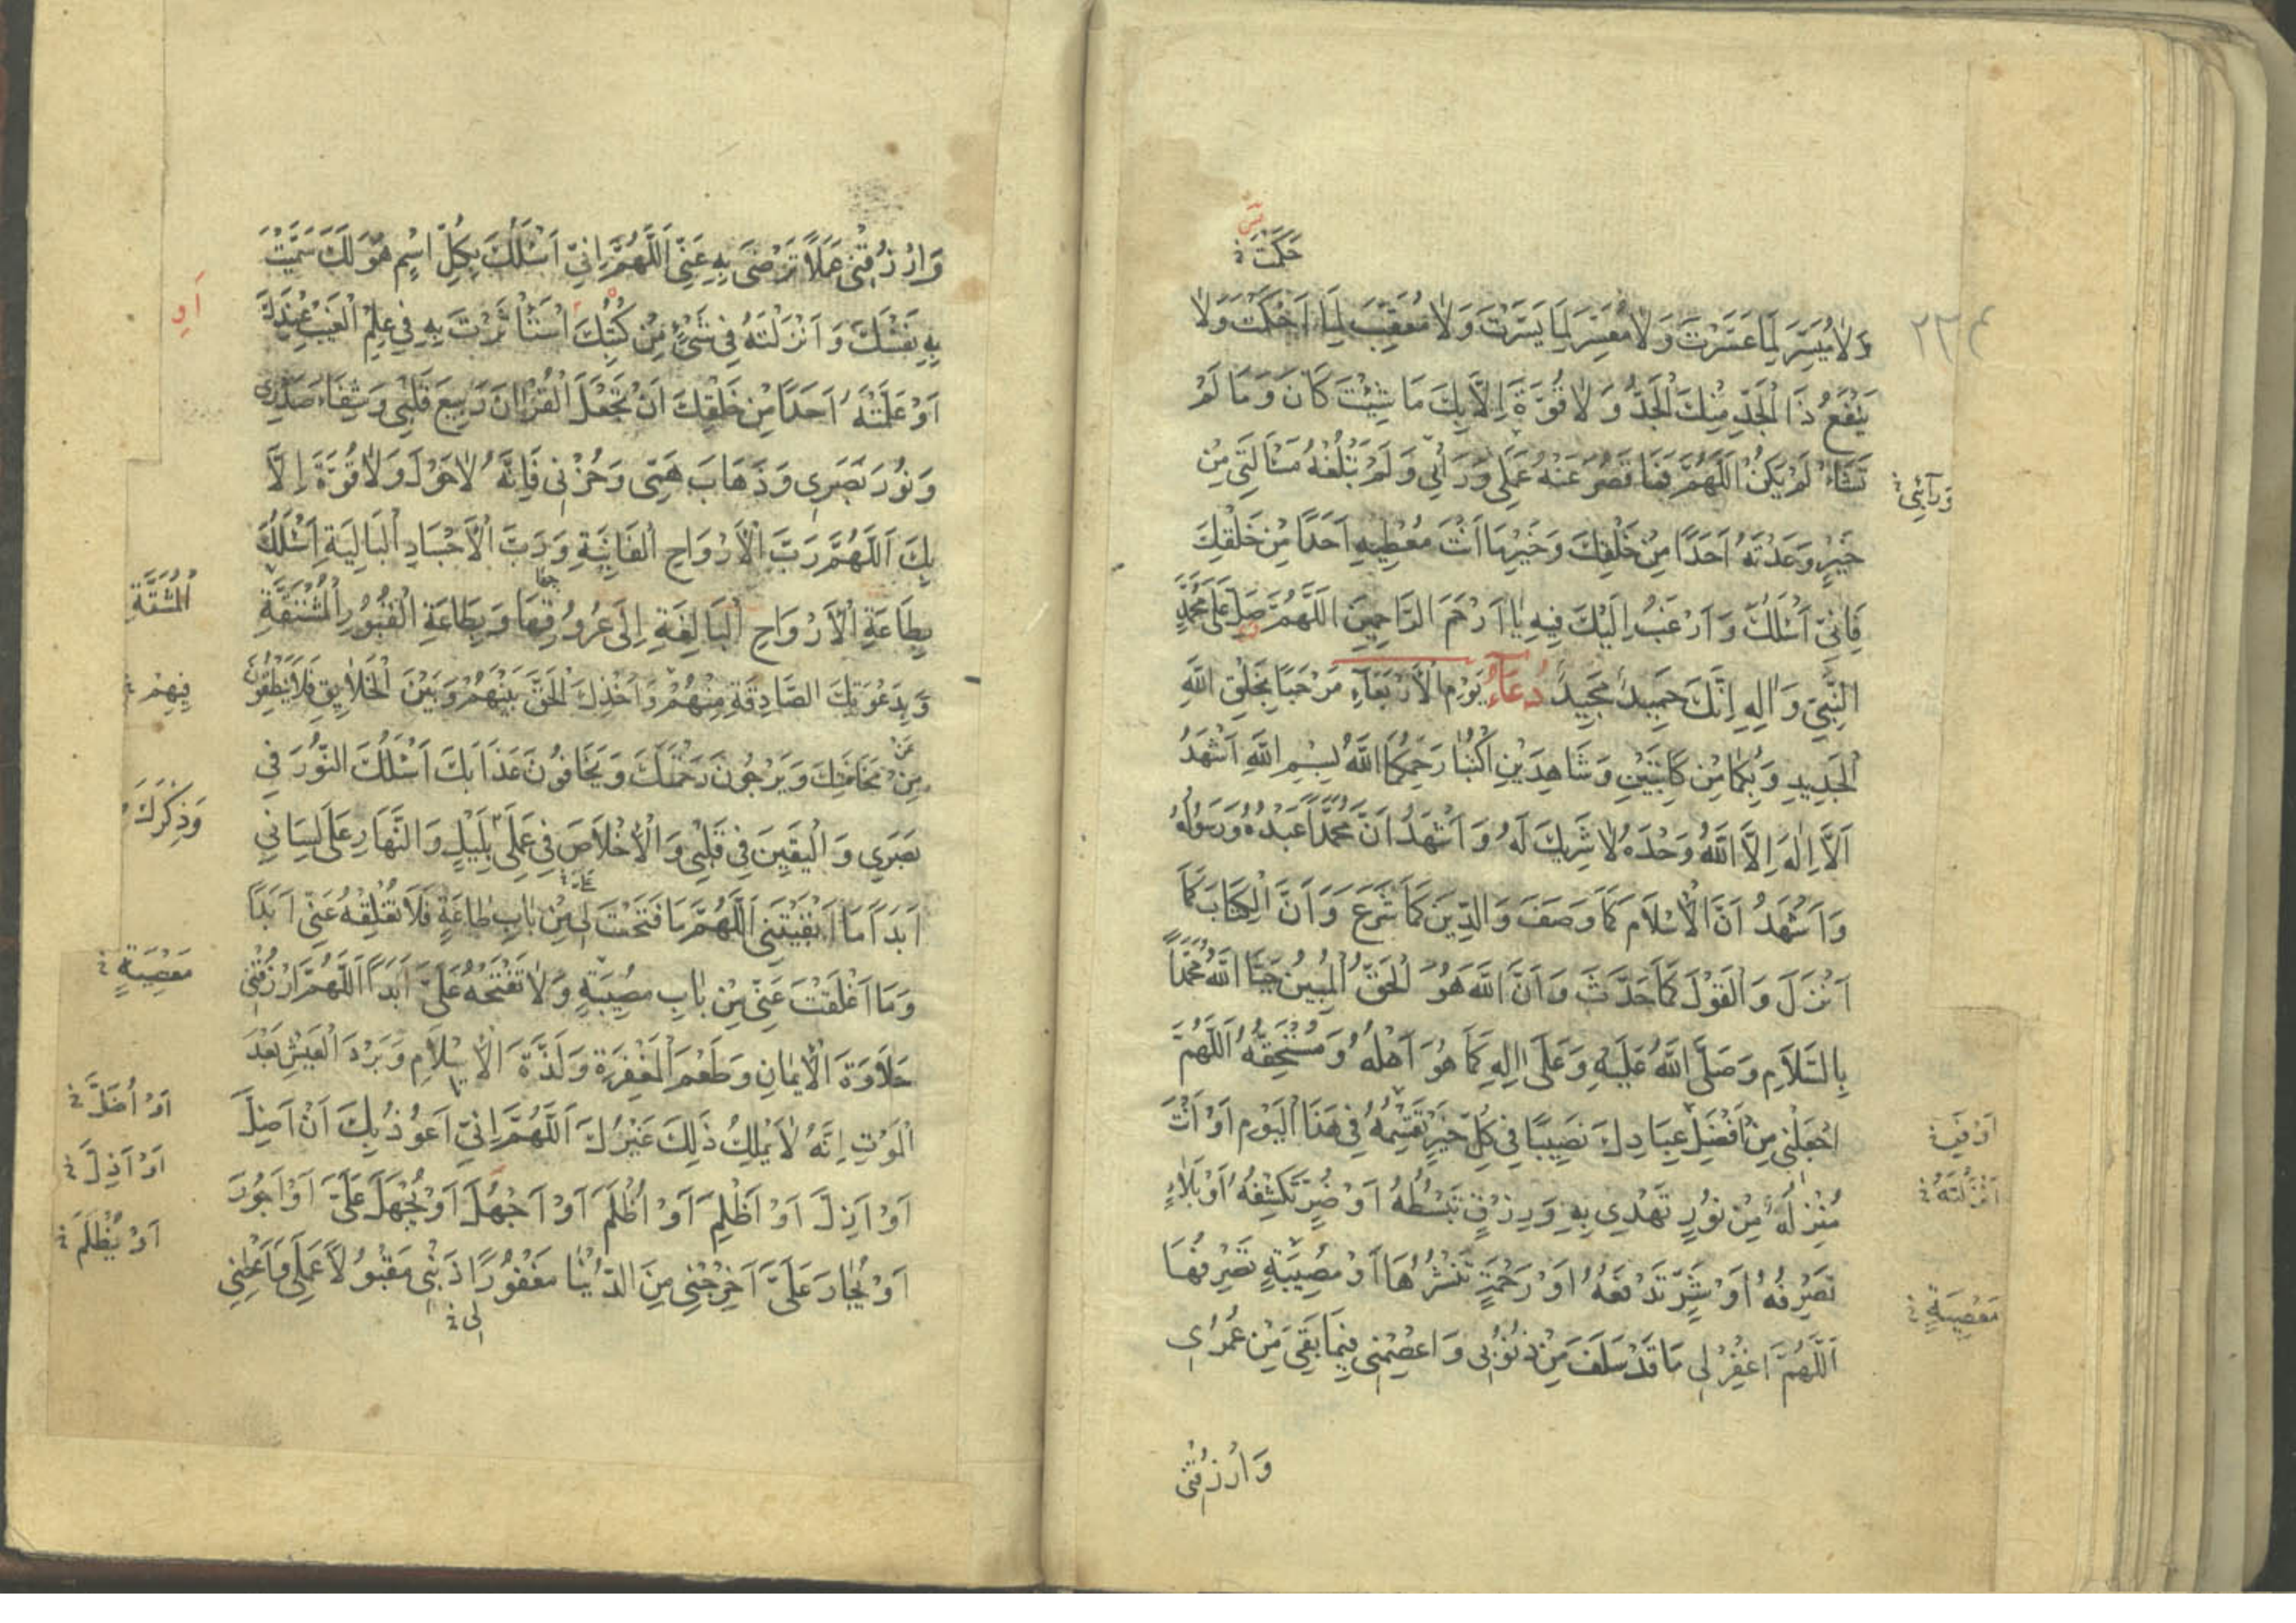 حَكَمْتَ
وَلَا مُيَسِّرَ لِمَا عَسَّرْتَ وَلَا مُعَسِّرَ لِمَا يَسَّرْتَ وَلَا مُعَقِّبَ لِمَا اَحْكَمْتَ وَلَا
٢٢٤
يَنْفَعُ ذَا الْجَدِّ مِنْكَ الْجَدُّ وَلَا قُوَّةَ اِلَّا بِكَ مَا شِئْتَ كَانَ وَمَا لَمْ
تَشَاْ لَمْ يَكُنْ اَللّٰهُمَّ فَمَا قَصُرَ عَنْهُ عَمَلِي وَرَأْيِي وَلَمْ تَبْلُغْهُ مَسْاَلَتِي مِنْ
وَرَآئِي
خَيْرٍ وَعَدْتَهُ اَحَدًا مِنْ خَلْقِكَ وَخَيْرِ مَا اَنْتَ مُعْطِيهِ اَحَدًا مِنْ خَلْقِكَ
فَاِنِّي اَسْئَلُكَ وَاَرْغَبُ اِلَيْكَ فِيهِ يَا اَرْحَمَ الرَّاحِمِينَ اَللّٰهُمَّ صَلِّ عَلَى مُحَمَّدٍ
النَّبِيِّ وَاٰلِهِ اِنَّكَ حَمِيدٌ مَجِيدٌ دُعَآءُ يَوْمِ الْاَرْبَعَآءِ مَرْحَبًا بِخَلْقِ اللّٰهِ
الْجَدِيدِ وَبِكُمَا مِنْ كَاتِبَيْنِ وَشَاهِدَيْنِ اُكْتُبَا رَحِمَكُمَا اللّٰهُ بِسْمِ اللّٰهِ اَشْهَدُ
اَلَّا اِلٰهَ اِلَّا اللّٰهُ وَحْدَهُ لَا شَرِيكَ لَهُ وَاَشْهَدُ اَنَّ مُحَمَّدًا عَبْدُهُ وَرَسُولُهُ
وَاَشْهَدُ اَنَّ الْاِسْلَامَ كَمَا وَصَفَ وَالدِّينَ كَمَا شَرَعَ وَاَنَّ الْكِتَابَ كَمَا
اَنْزَلَ وَالْقَوْلَ كَمَا حَدَّثَ وَاَنَّ اللّٰهَ هُوَ الْحَقُّ الْمُبِينُ حَيَّا اللّٰهُ مُحَمَّدًا
بِالسَّلَامِ وَصَلَّى اللّٰهُ عَلَيْهِ وَعَلَى اٰلِهِ كَمَا هُوَ اَهْلُهُ وَمُسْتَحِقُّهُ اَللّٰهُمَّ
اجْعَلْنِي مِنْ اَفْضَلِ عِبَادِكَ نَصِيبًا فِي كُلِّ خَيْرٍ تَقْسِمُهُ فِي هٰذَا الْيَوْمِ اَوْ اَنْتَ
اَوْ فِي
مُنْزِلُهُ مِنْ نُورٍ تَهْدِي بِهِ وَرِزْقٍ تَبْسُطُهُ اَوْ ضُرٍّ تَكْشِفُهُ اَوْ بَلَاءٍ
اَنْزَلْتَهُ
تَصْرِفُهُ اَوْ شَرٍّ تَدْفَعُهُ اَوْ رَحْمَةٍ تَنْشُرُهَا اَوْ مُصِيبَةٍ تَصْرِفُهَا
مَعْصِيَةٍ
اَللّٰهُمَّ اغْفِرْ لِي مَا قَدْ سَلَفَ مِنْ ذُنُوبِي وَاعْصِمْنِي فِيمَا بَقِيَ مِنْ عُمْرِي
وَارْزُقْنِي
وَارْزُقْنِي عَمَلًا تَرْضَى بِهِ عَنِّي اَللّٰهُمَّ اِنِّي اَسْئَلُكَ بِكُلِّ اسْمٍ هُوَ لَكَ سَمَّيْتَ
بِهِ نَفْسَكَ وَاَنْزَلْتَهُ فِي شَيْءٍ مِنْ كُتُبِكَ اسْتَاْثَرْتَ بِهِ فِي عِلْمِ الْغَيْبِ عِنْدَكَ
اَوِ
اَوْ عَلَّمْتَهُ اَحَدًا مِنْ خَلْقِكَ اَنْ تَجْعَلَ الْقُرْاٰنَ رَبِيعَ قَلْبِي وَشِفَاءَ صَدْرِي
وَنُورَ بَصَرِي وَذَهَابَ هَمِّي وَحُزْنِي فَاِنَّهُ لَا حَوْلَ وَلَا قُوَّةَ اِلَّا
بِكَ اَللّٰهُمَّ رَبَّ الْاَرْوَاحِ الْفَانِيَةِ وَرَبَّ الْاَجْسَادِ الْبَالِيَةِ اَسْئَلُكَ
بِطَاعَةِ الْاَرْوَاحِ الْبَالِغَةِ اِلَى عُرُوقِهَا وَبِطَاعَةِ الْقُبُورِ الْمُنْشَقَّةِ
الْمُشَقَّةِ
وَبِدَعْوَتِكَ الصَّادِقَةِ مِنْهُمْ وَاَخْذِكَ الْحَقَّ بَيْنَهُمْ وَبَيْنَ الْخَلَايِقِ فَلَا يَنْطِقُونَ
فِيهِمْ
مِنْ مَخَافَتِكَ وَيَرْجُونَ رَحْمَتَكَ وَيَخَافُونَ عَذَابَكَ اَسْئَلُكَ النُّورَ فِي
عَنْ
بَصَرِي وَالْيَقِينَ فِي قَلْبِي وَالْاِخْلَاصَ فِي عَمَلِي بِلَيْلٍ وَالنَّهَارِ عَلَى لِسَانِي
وَذِكْرَكَ
اَبَدًا مَا اَبْقَيْتَنِي اَللّٰهُمَّ مَا فَتَحْتَ لِي مِنْ بَابِ طَاعَةٍ فَلَا تُغْلِقْهُ عَنِّي اَبَدًا
وَمَا اَغْلَقْتَ عَنِّي مِنْ بَابِ مُصِيبَةٍ وَلَا تَفْتَحْهُ عَلَيَّ اَبَدًا اَللّٰهُمَّ ارْزُقْنِي
مَعْصِيَةٍ
حَلَاوَةَ الْاِيمَانِ وَطَعْمَ الْمَغْفِرَةِ وَلَذَّةَ الْاِسْلَامِ وَبَرْدَ الْعَيْشِ بَعْدَ
الْمَوْتِ اِنَّهُ لَا يَمْلِكُ ذٰلِكَ غَيْرُكَ اَللّٰهُمَّ اِنِّي اَعُوذُ بِكَ اَنْ اَضِلَّ
اَوْ اُضَلَّ
اَوْ اَذِلَّ
اَوْ اَذِلَّ اَوْ اَظْلِمَ اَوْ اُظْلَمَ اَوْ اَجْهَلَ اَوْ يُجْهَلَ عَلَيَّ اَوْ اَجُورَ
اَوْ يُظْلَمَ
اَوْ يُجَارَ عَلَيَّ اَخْرِجْنِي مِنَ الدُّنْيَا مَغْفُورًا ذَنْبِي مَقْبُولًا عَمَلِي وَاَعْطِنِي
لِي